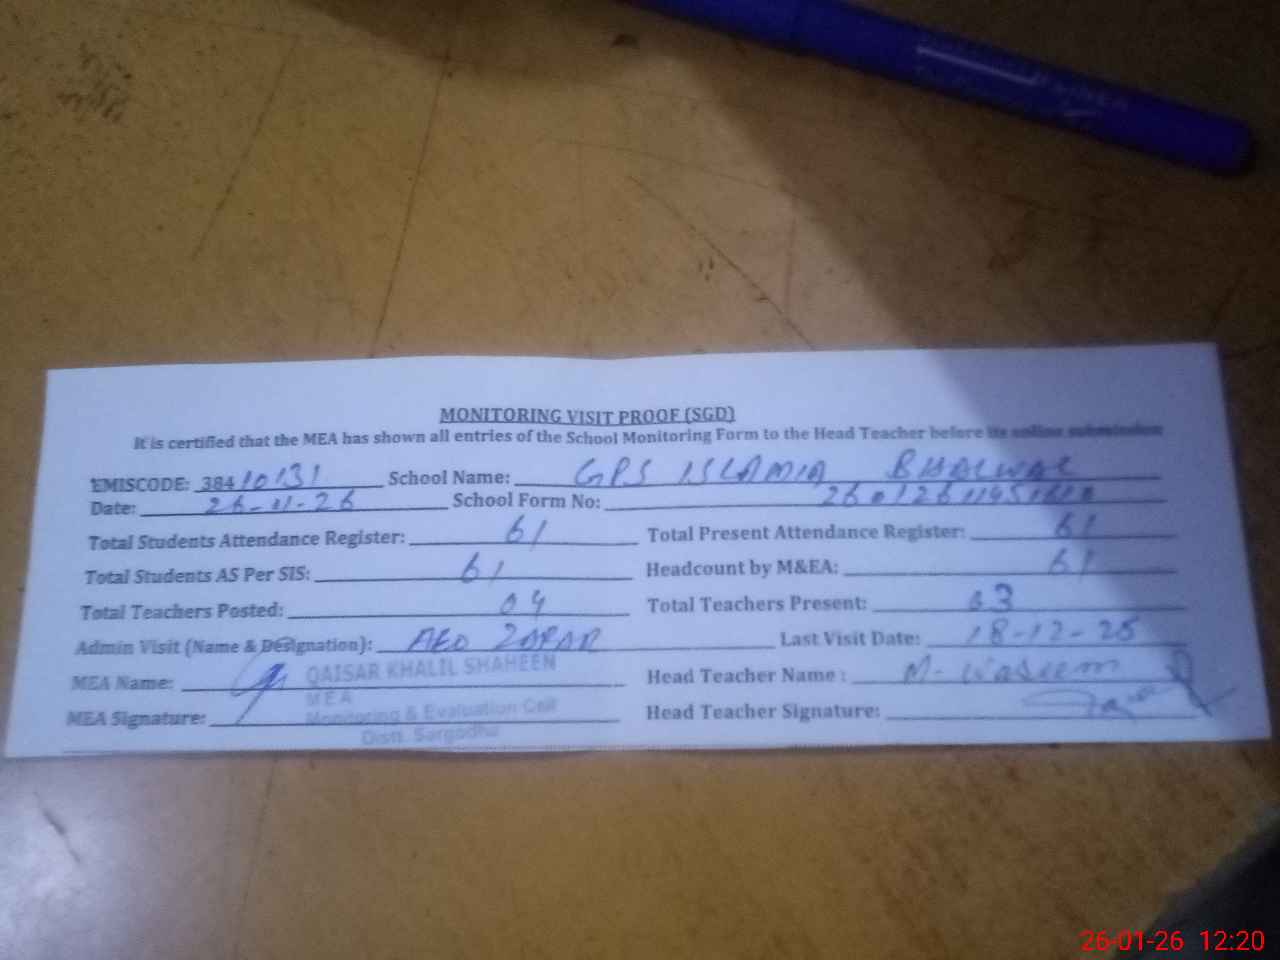 MONITORING VISIT PROOF (SGD)
It is certified that the MEA has shown all entries of the School Monitoring Form to the Head Teacher before its online submission
EMISCODE: 38410131 School Name: GPS ISLAMIA BHALWAL
Date: 26-11-26 School Form No:
Total Students Attendance Register: 61 Total Present Attendance Register: 61
Total Students AS Per SIS: 61 Headcount by M&EA: 61
Total Teachers Posted: 04 Total Teachers Present: 03
Admin Visit (Name & Designation): AEO ZARAR Last Visit Date: 18-12-25
MEA Name: QAISAR KHALIL SHAHEEN Head Teacher Name: M- Waseem
MEA
MEA Signature: Monitoring & Evaluation Cell Head Teacher Signature:
Distt. Sargodha
26-01-26 12:20